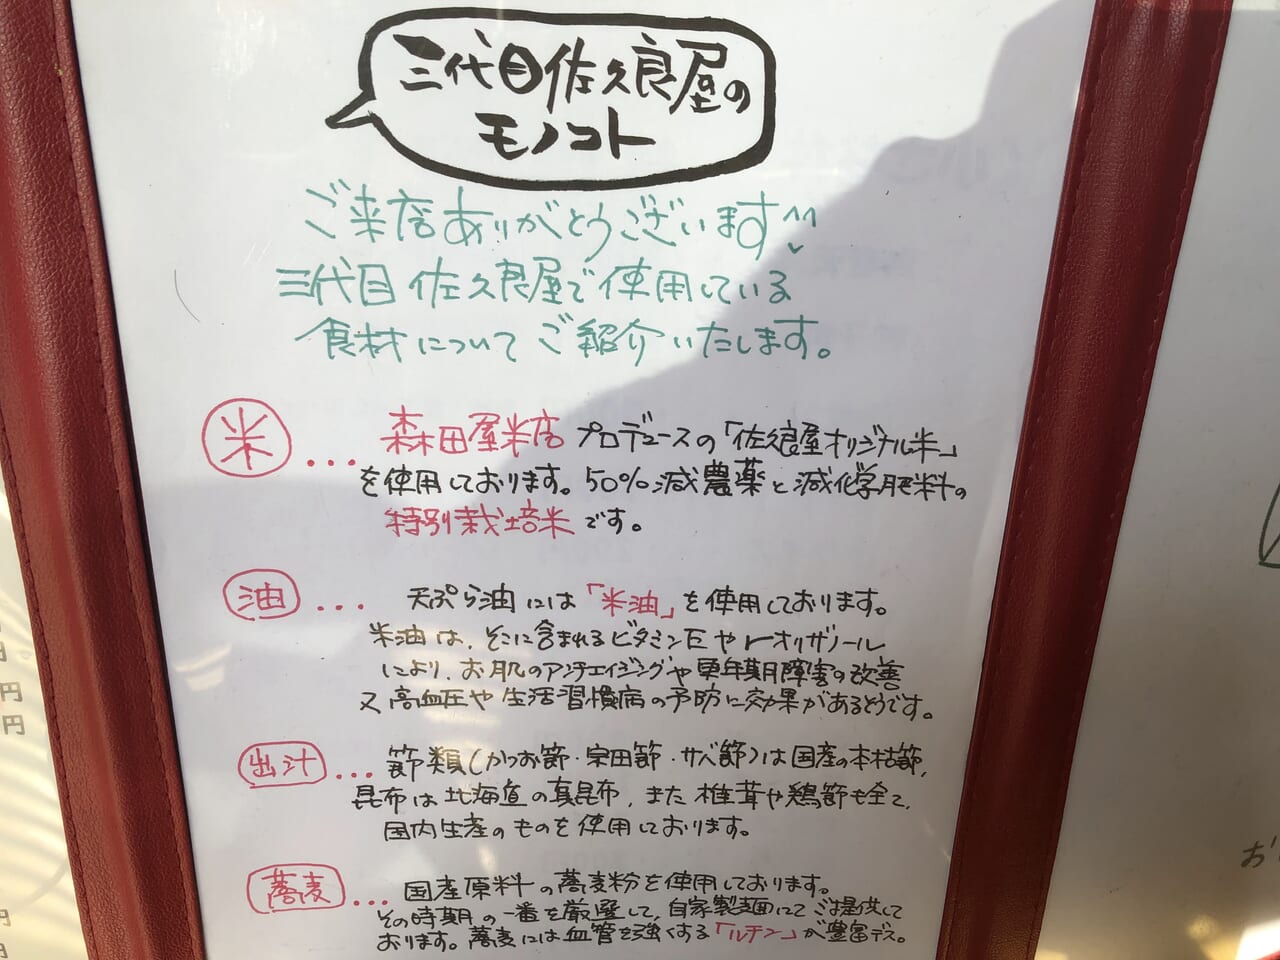 三代目佐久良屋の
モノコト
ご来店ありがとうございます^^
三代目佐久良屋で使用している
食材についてご紹介いたします。
米… 森田屋米店プロデュースの「佐久良屋オリジナル米」
を使用しております。50%減農薬と減化学肥料の
特別栽培米です。
油… 天ぷら油には「米油」を使用しております。
米油は、そこに含まれるビタミンEやrオリザノール
により、お肌のアンチエイジングや更年期障害の改善
又高血圧や生活習慣病の予防に効果があるどうです。
出汁… 節類(かつお節・宗田節・サバ節)は国産の本枯節、
昆布は北海道の真昆布、また椎茸や鶏節も全て、
国内生産のものを使用しております。
蕎麦… 国産原料の蕎麦粉を使用しております。
その時期の一番を厳選して、自家製麺にてご提供して
おります。蕎麦には血管を強くする「ルチン」が豊富デス。
円
円
円
お
円
円